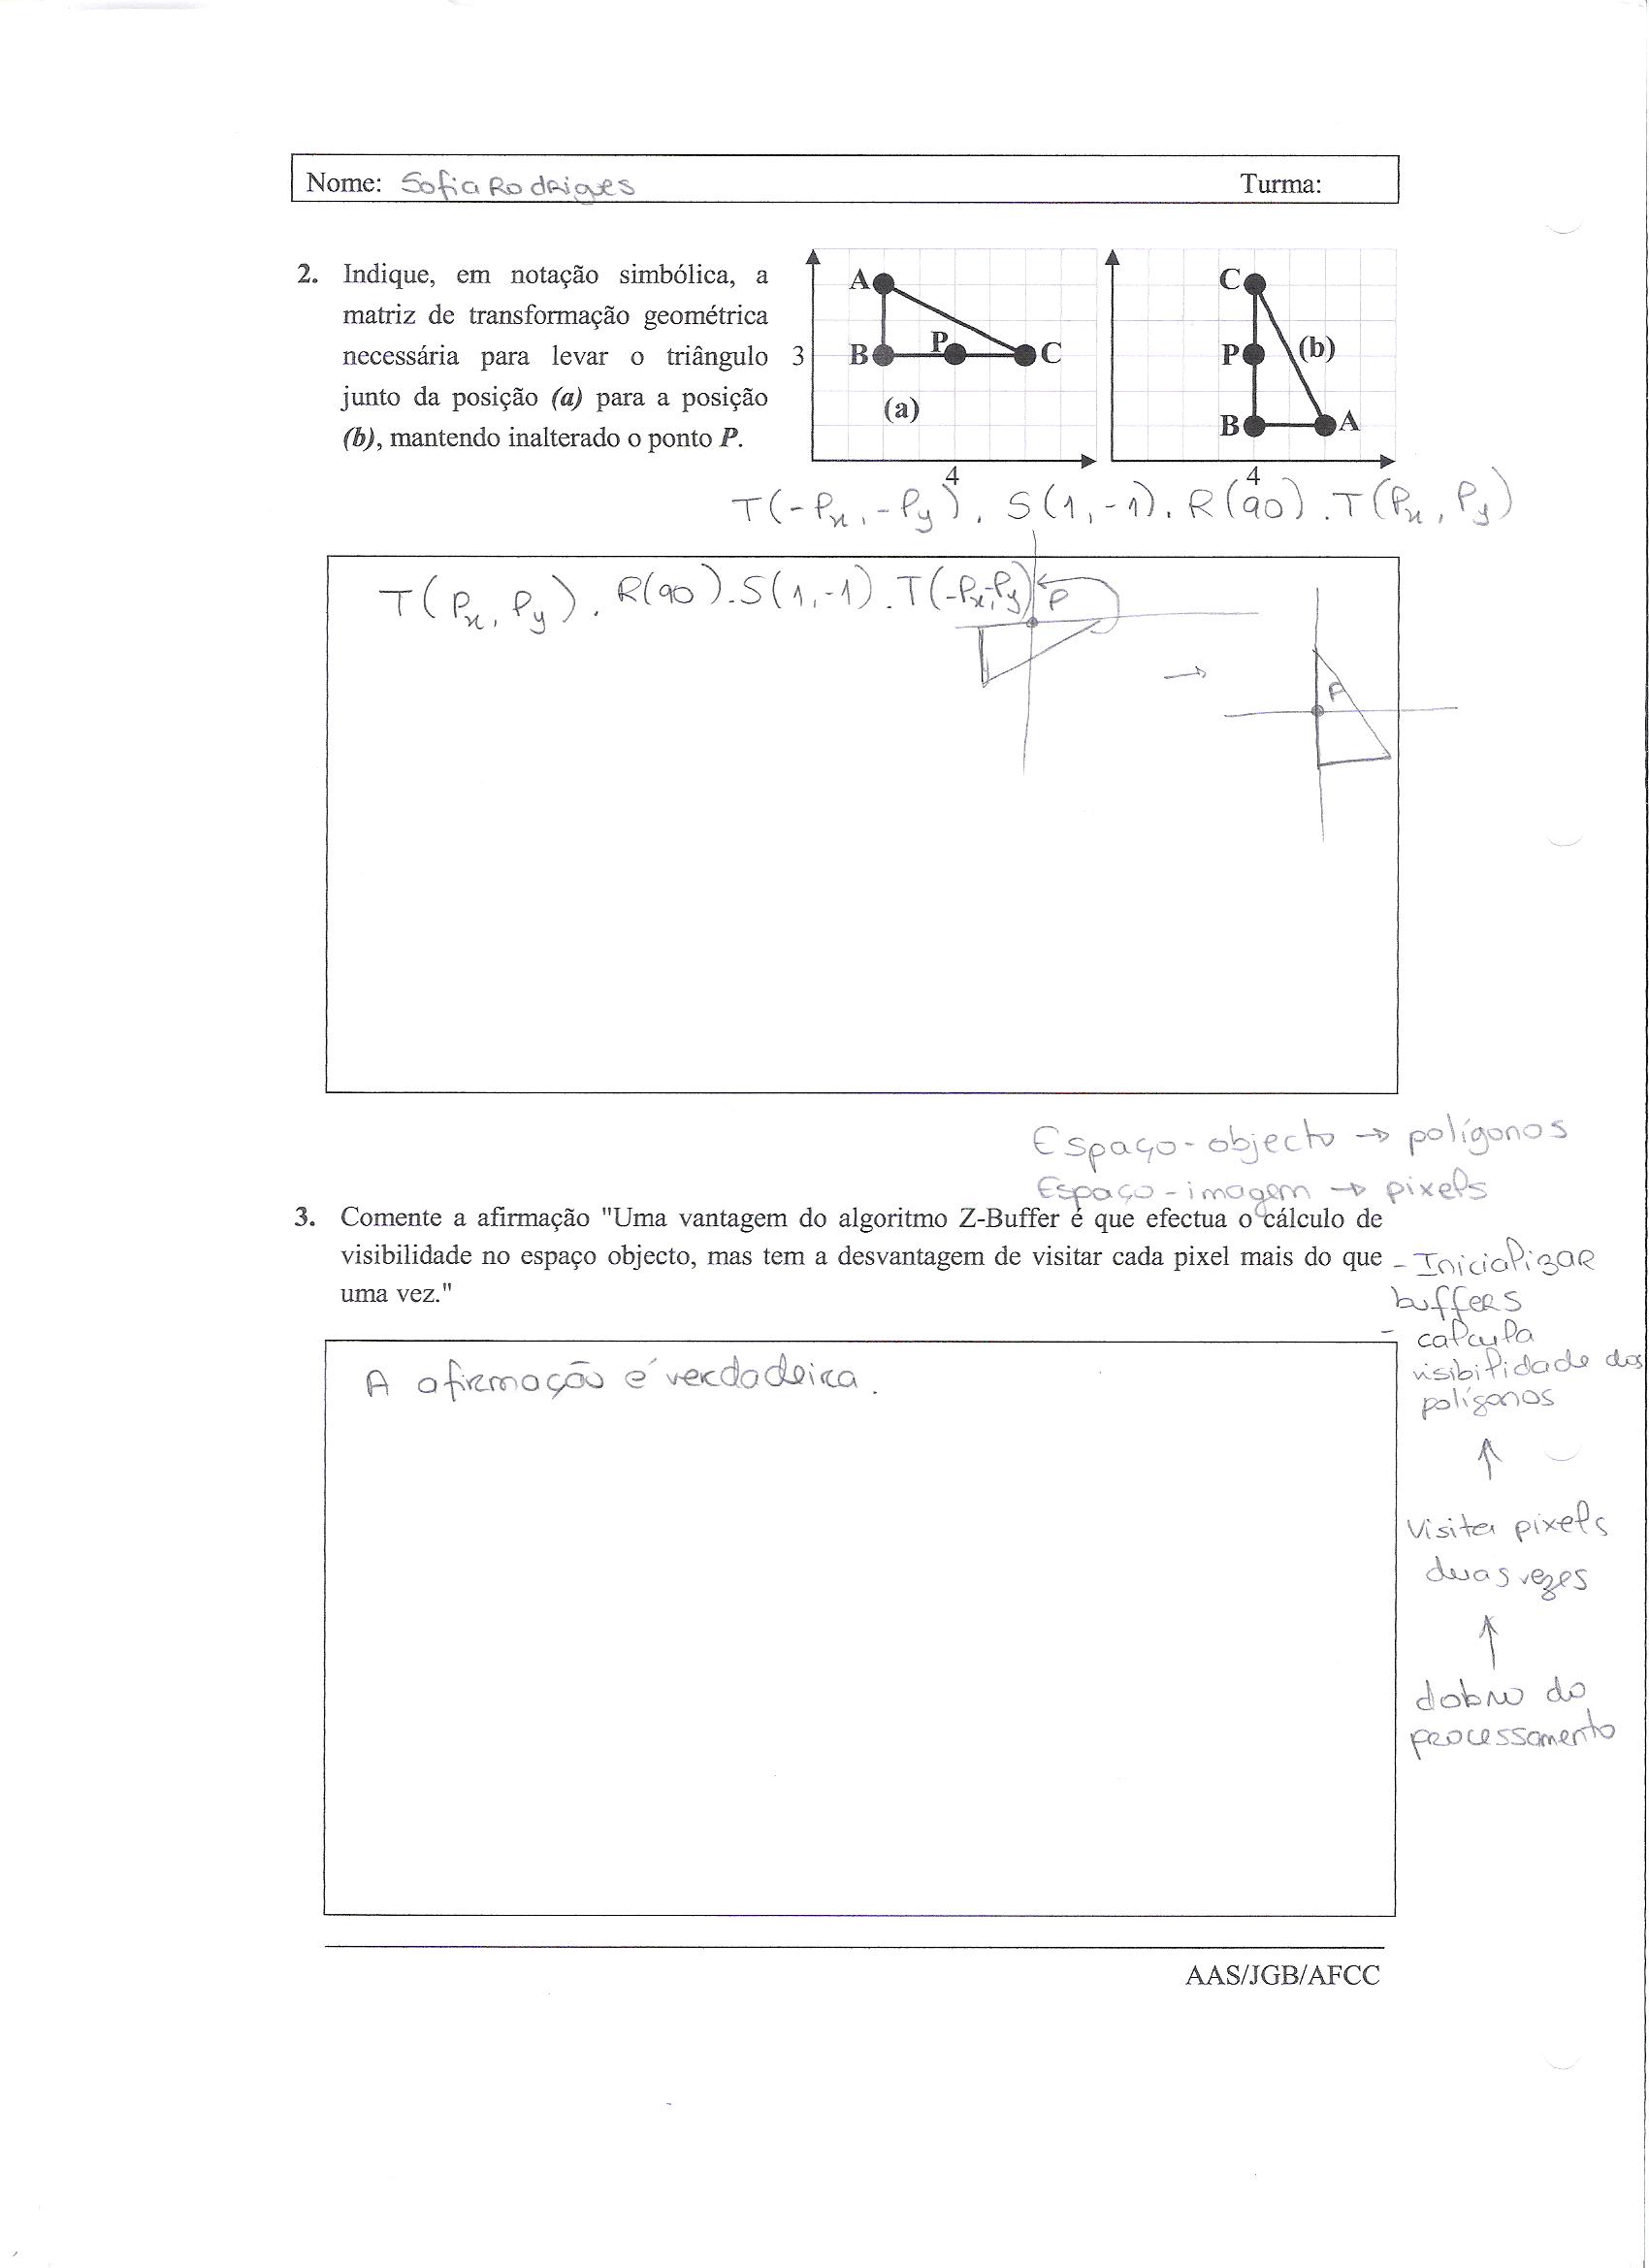 Nome: Sofia Rodrigues Turma:
2. Indique, em notação simbólica, a
matriz de transformação geométrica
necessária para levar o triângulo
junto da posição (a) para a posição
(b), mantendo inalterado o ponto P.
A
B
P
C
3
(a)
4
C
P
(b)
B
A
4
T(-Px, -Py). S(1,-1). R(90). T(Px, Py)
T(Px, Py). R(90).S(1,-1).T(-Px,-Py)
P
→
P
Espaço-objecto → polígonos
Espaço-imagem → pixels
3. Comente a afirmação "Uma vantagem do algoritmo Z-Buffer é que efectua o cálculo de
visibilidade no espaço objecto, mas tem a desvantagem de visitar cada pixel mais do que
uma vez."
- Inicializar
buffers
- calcula
visibilidade dos
polígonos
↑
visita pixels
duas vezes
↑
dobro do
processamento
A afirmação é verdadeira.
AAS/JGB/AFCC